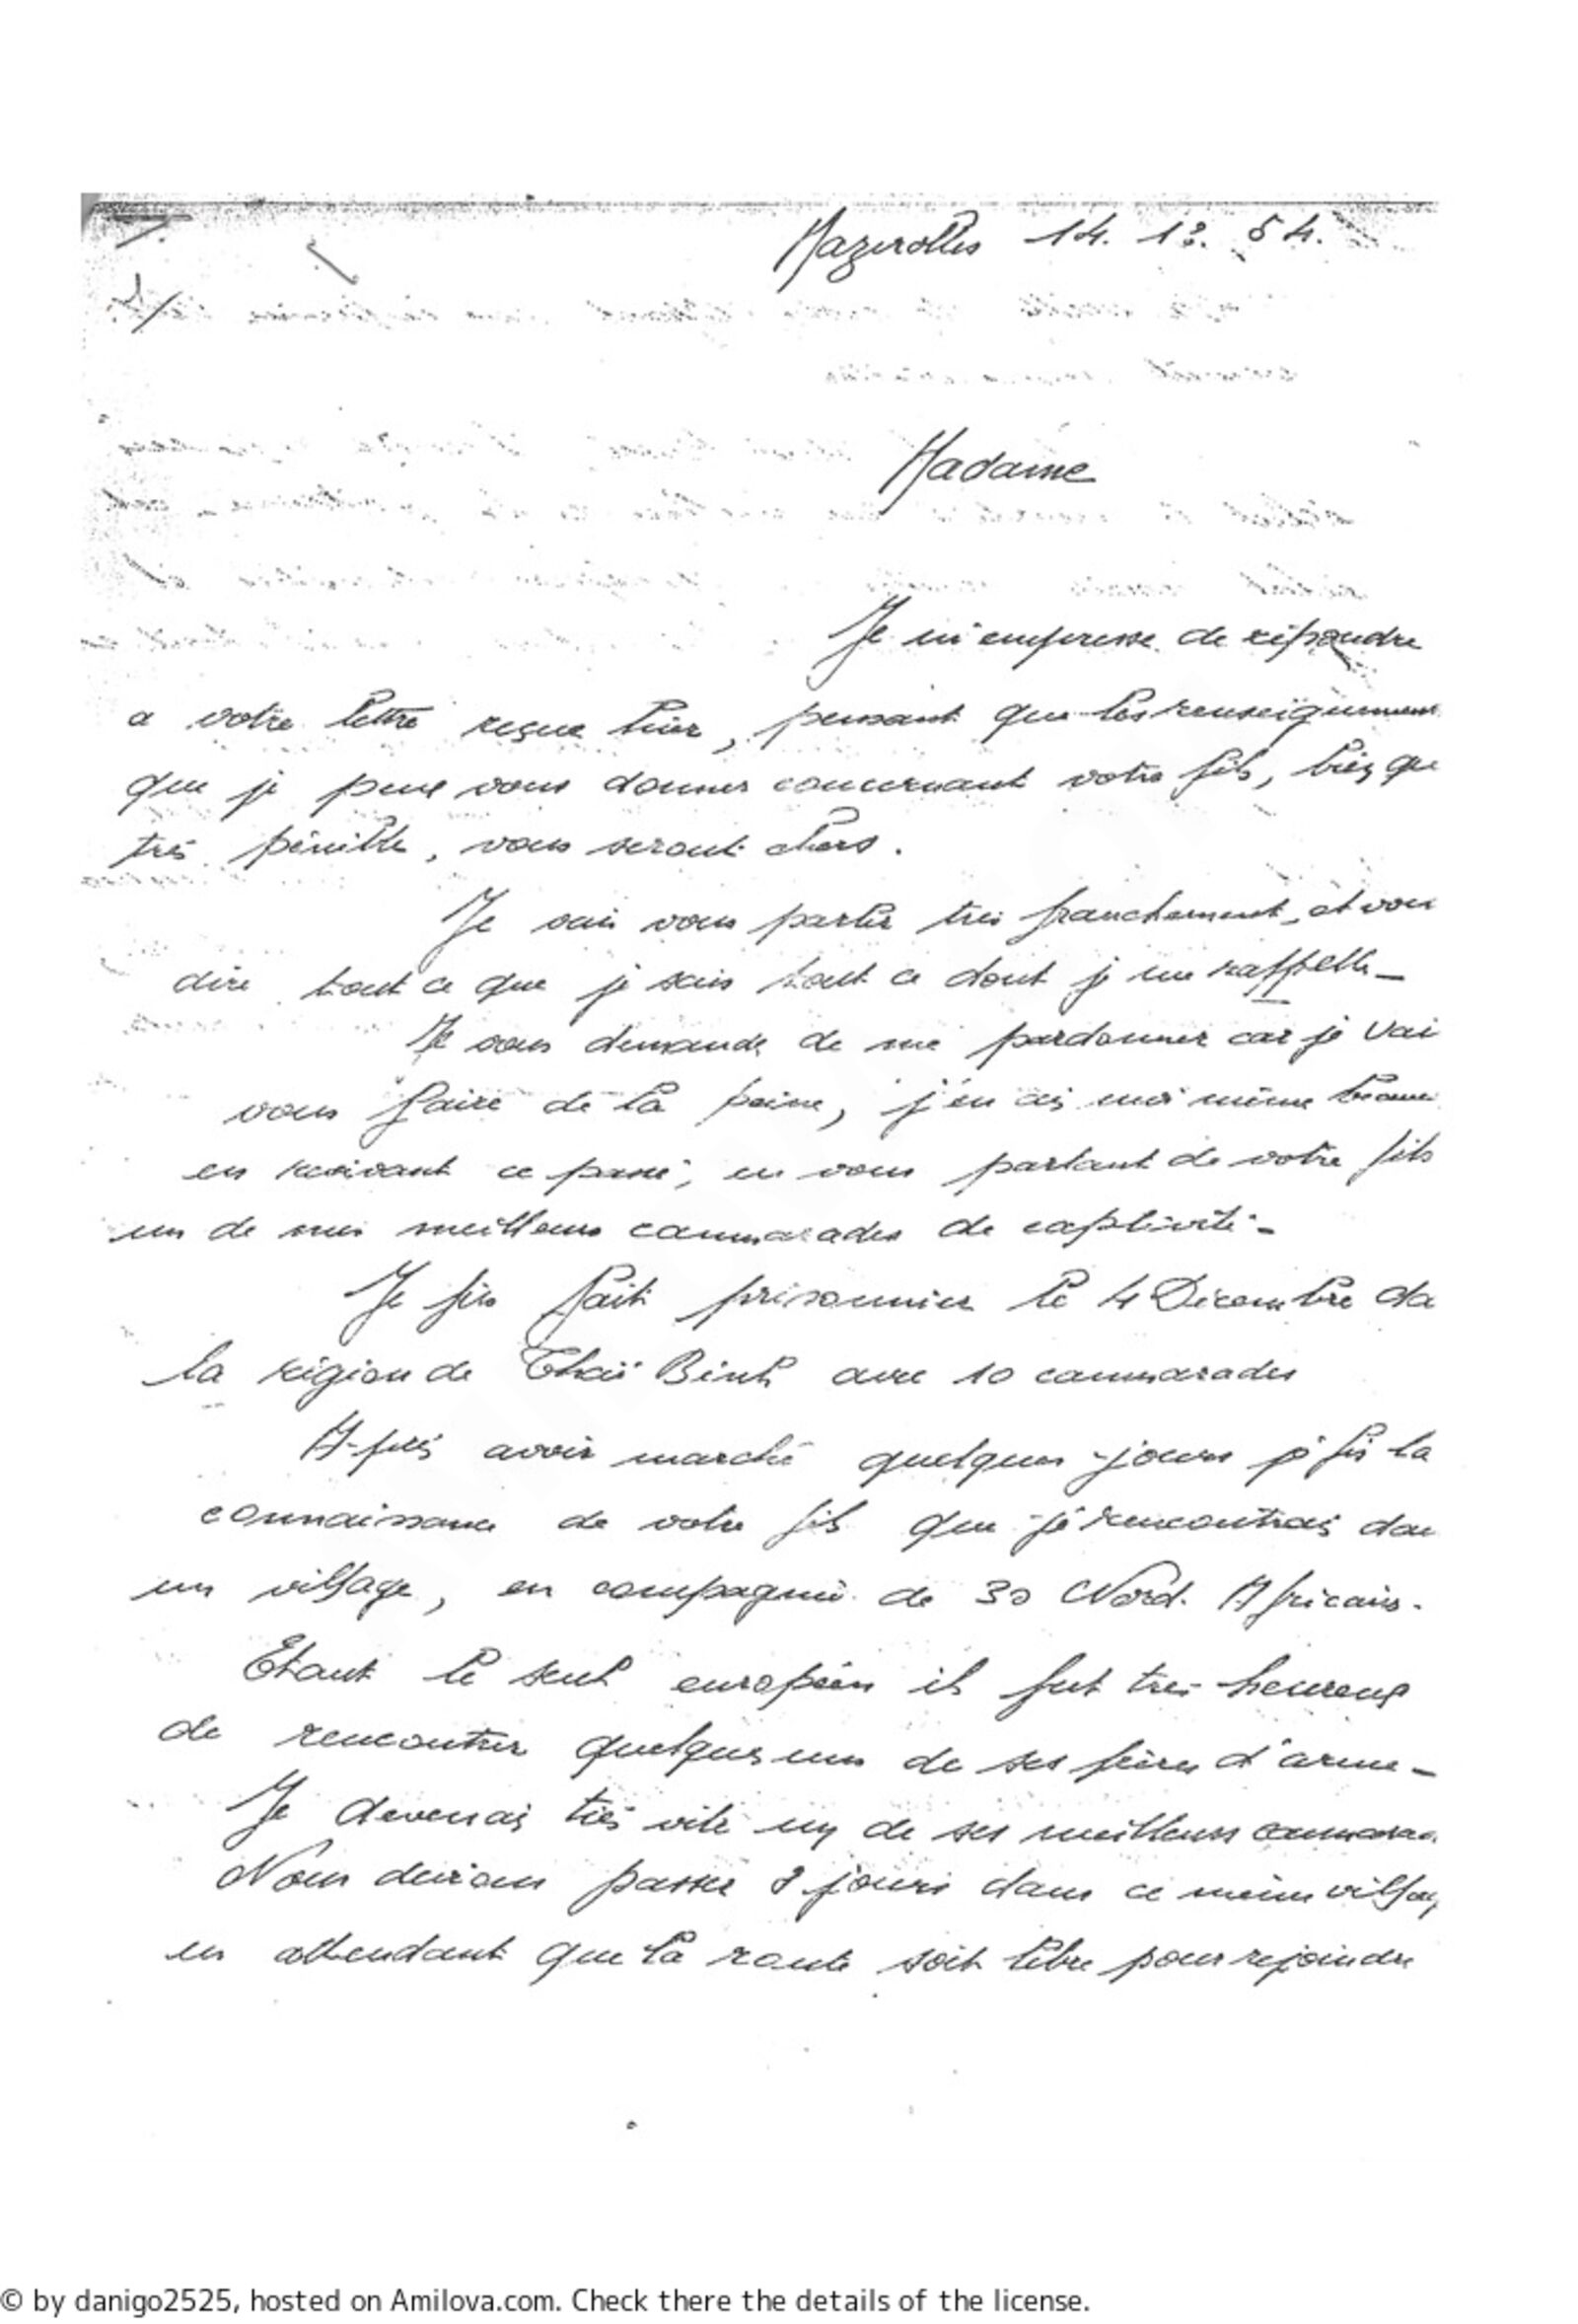 Mazerolles 14. 12. 54.
Madame
Je m'empresse de répondre
a votre lettre reçue hier, pensant que les renseignement
que je peux vous donner concernant votre fils, bien que
très pénible, vous seront chers.
Je vais vous parler très franchement, et vou
dire tout ce que je sais tout ce dont je me rappelle_
Je vous demande de me pardonner car je vai
vous faire de la peine, j'en ais moi même beauc
en revivant ce passé, en vous parlant de votre fils
un de mes meilleurs cammarades de captivité_
Je fus fait prisonnier le 4 Décembre da
la région de Thaï Binh avec 10 cammarades
Après avoir marché quelques jours je fis la
connaissance de votre fils que je rencontrais dan
un village, en compagnie de 30 Nord. Africains.
Etant le seul européen il fut très heureux
de rencontrer quelques uns de ses frères d'arme_
Je devenais très vite un de ses meilleurs cammara
Nous devions passer 8 jours dans ce même villag
en attendant que la route soit libre pour rejoindre
© by danigo2525, hosted on Amilova.com. Check there the details of the license.